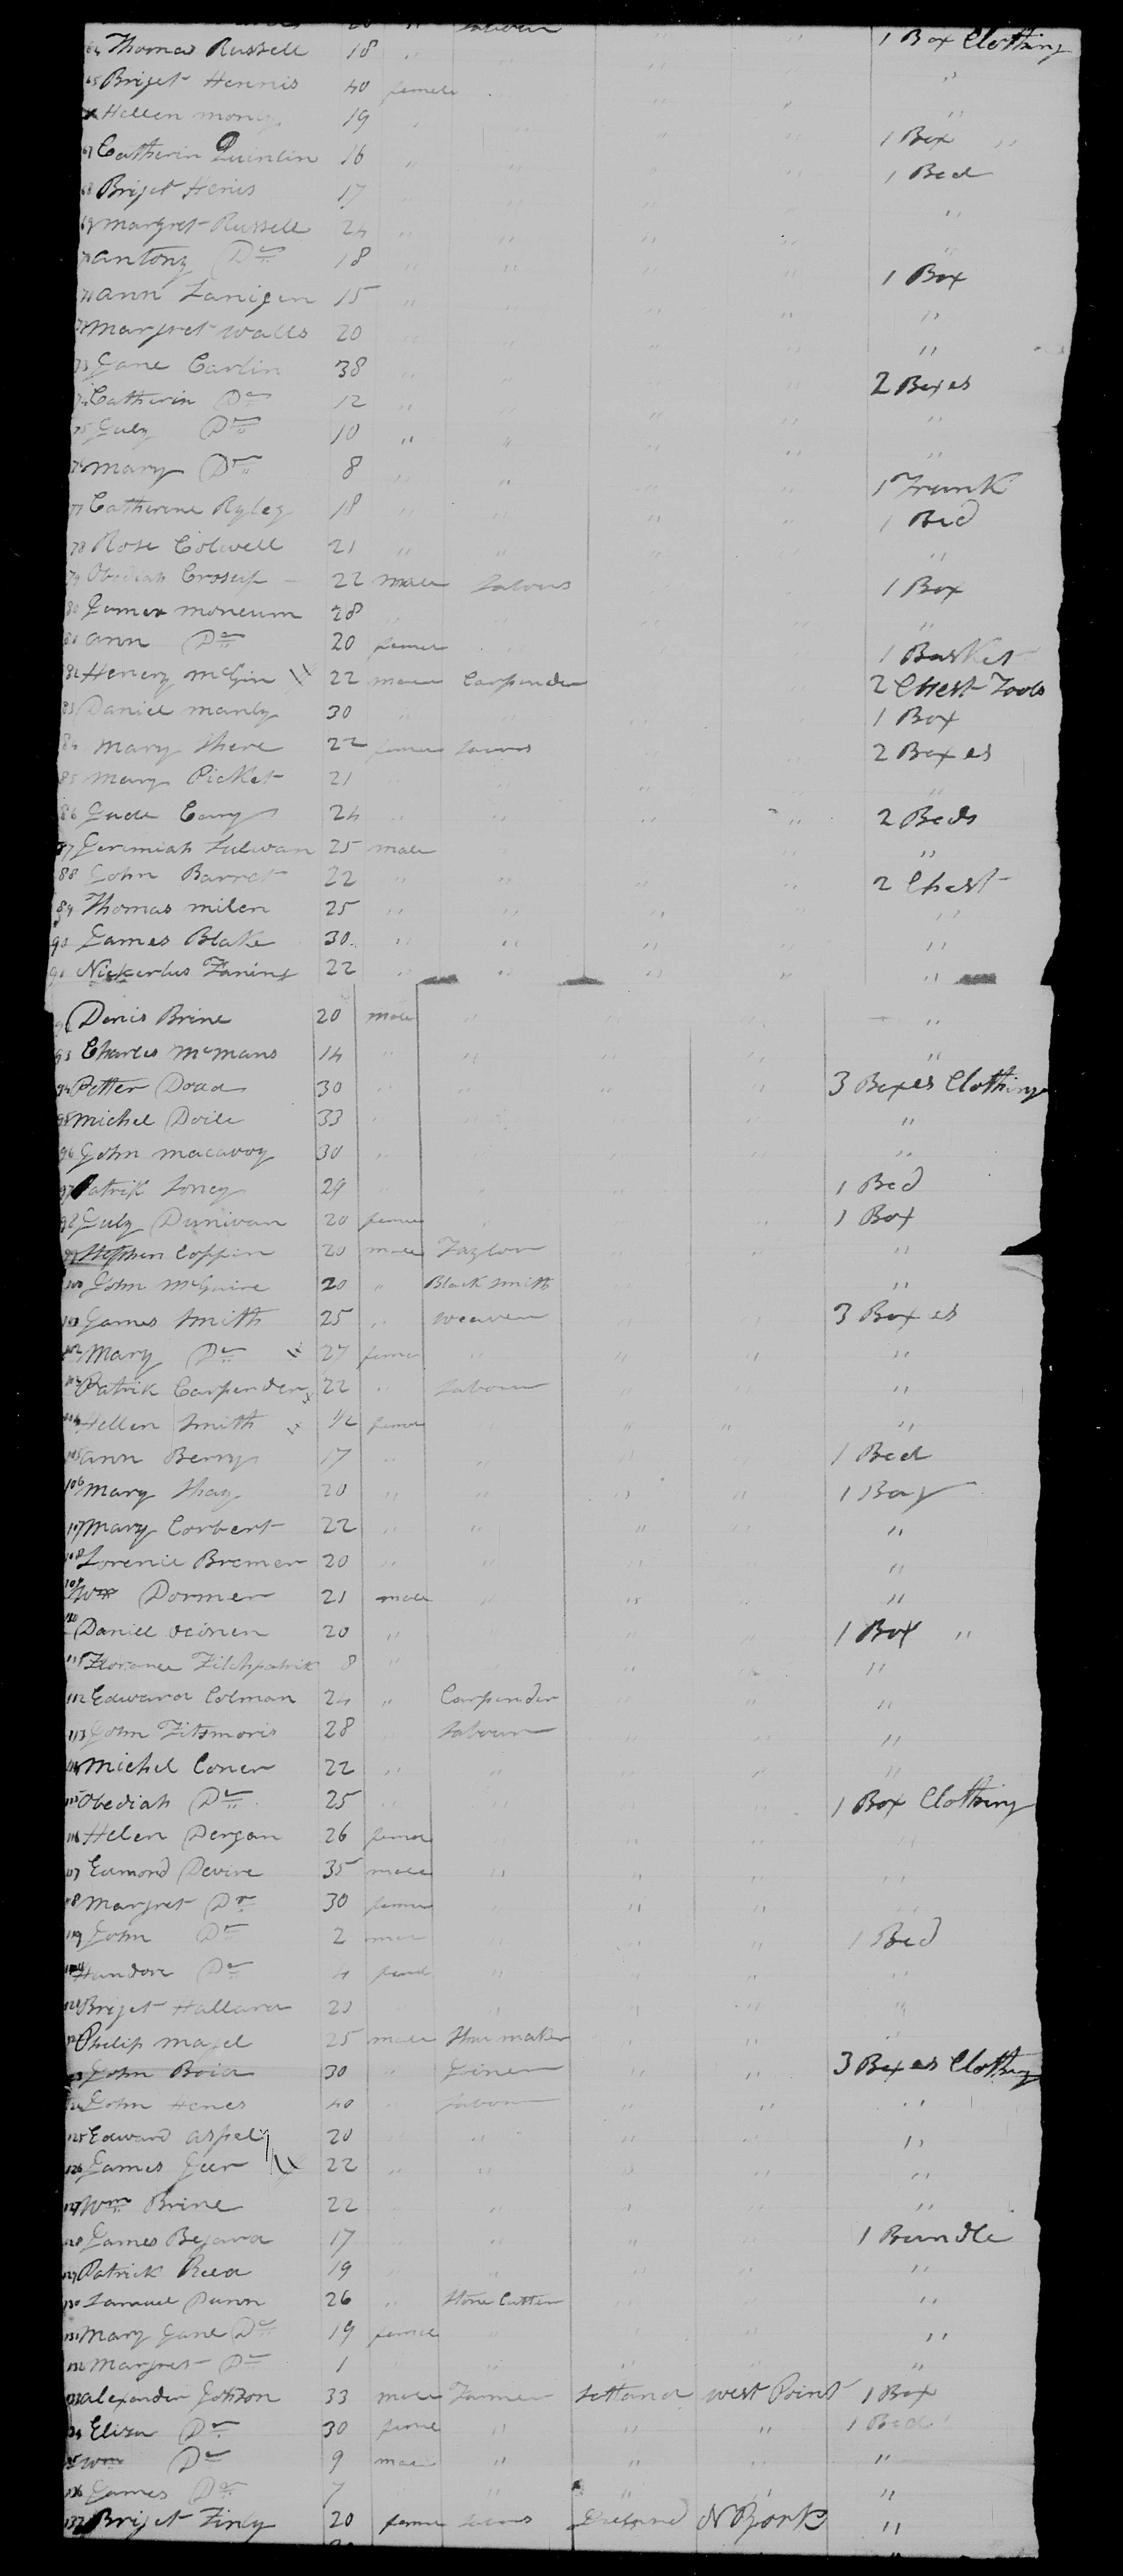 64 Thomas Russell 18 " " " " 1 Box Clothing
65 Briget Hennis 40 female " " "
Hellen mony 19 " " " " "
67 Catherin Quinlin 16 " " " " 1 Box "
68 Briget Henis 17 " " " " 1 Bed
69 margret Russell 24 " " " " "
70 antony Do 18 " " " " "
71 ann Lanigen 15 " " " " 1 Box
72 Margret walls 20 " " " " "
73 Jane Carlin 38 " " " " "
74 Catherin Do 12 " " " " 2 Boxes
75 July Do 10 " " " " "
76 Mary Do 8 " " " " "
77 Catherine Ryley 18 " " " " 1 Trunk
78 Rose Colwell 21 " " " " 1 Bed
79 Obediah Crosup 22 male Labour "
80 James moneum 28 " " " " 1 Box
81 ann Do 20 female "
82 Henery McGin 22 male Carpender 1 Basket
83 Daniel manly 30 " " 2 Chest Tools
84 Mary Shere 22 female 1 Box
85 Mary Picket 21 " " 2 Boxes
86 Jude Cary 24 " " " " "
87 Jeremiah Sulivan 25 male 2 Beds
88 John Barret 22 " " " " "
89 Thomas milen 25 " " " " 2 Chest
90 James Blake 30 " " " " "
91 Nickerlus Faning 22 " " " " "
Denis Brine 20 male " " " "
93 Charles McMans 14 " " " " "
94 Petter Doad 30 " " " " 3 Boxes Clothing
95 Michel Doile 33 " "
96 John macavoy 30 " "
97 Patrik Loney 29 " 1 Bed
98 July Dunivan 20 female 1 Box
99 Stephen Coppin 20 male Taylor "
100 John McGuire 20 " Black Smith "
101 James Smith 25 " weaver 3 Boxes
102 Mary Do 27 female " " " "
103 Patrik Carpender 22 " Labour "
104 Hellen Smith 1/2 female " " "
105 ann Berry 17 " " 1 Bed
106 Mary Shay 20 " " " " 1 Bag
107 Mary Corbert 22 " " " " "
108 Lorence Bremer 20 " " "
109 Wm Dormer 21 male " " "
110 Daniel 20 " " 1 Box "
111 Florance Fitchpatrik 8 " "
112 Edward Colman 24 " Carpender " " "
113 John Fitsmoris 28 Labour "
114 Michel Coner 22 " " " "
115 Obediah Do 25 " 1 Box Clothing
116 Helen Dergan 26 female
117 Edmond Devire 35 male " " "
118 Margret Do 30 female " "
119 John Do 2 male " 1 Bed
Do 4 female " " "
121 Briget Hallara 21 " " "
Philip 25 male Shumaker " " "
John Boia 30 " Joiner " " 3 Boxes Clothing
John Henes 40 " Labour " " "
125 Edward aspel 20 " " "
126 James Geer 22 " " " " "
127 Wm Brine 22 " " " " "
128 James 17 " " " " 1 Bundle
129 Patrick Reed 19 " " " "
130 Samuel Dunn 26 " Stone Cutter "
131 Mary Jane Do 19 female " " " "
132 Margret Do 1 " " " " "
133 alexander 33 male Farmer Scotland west Point 1 Box
134 Eliza Do 30 female " " " 1 Bed
135 Wm Do 9 male " " " "
136 James Do 7 " " "
137 Briget Finly 20 female Ireland N York "